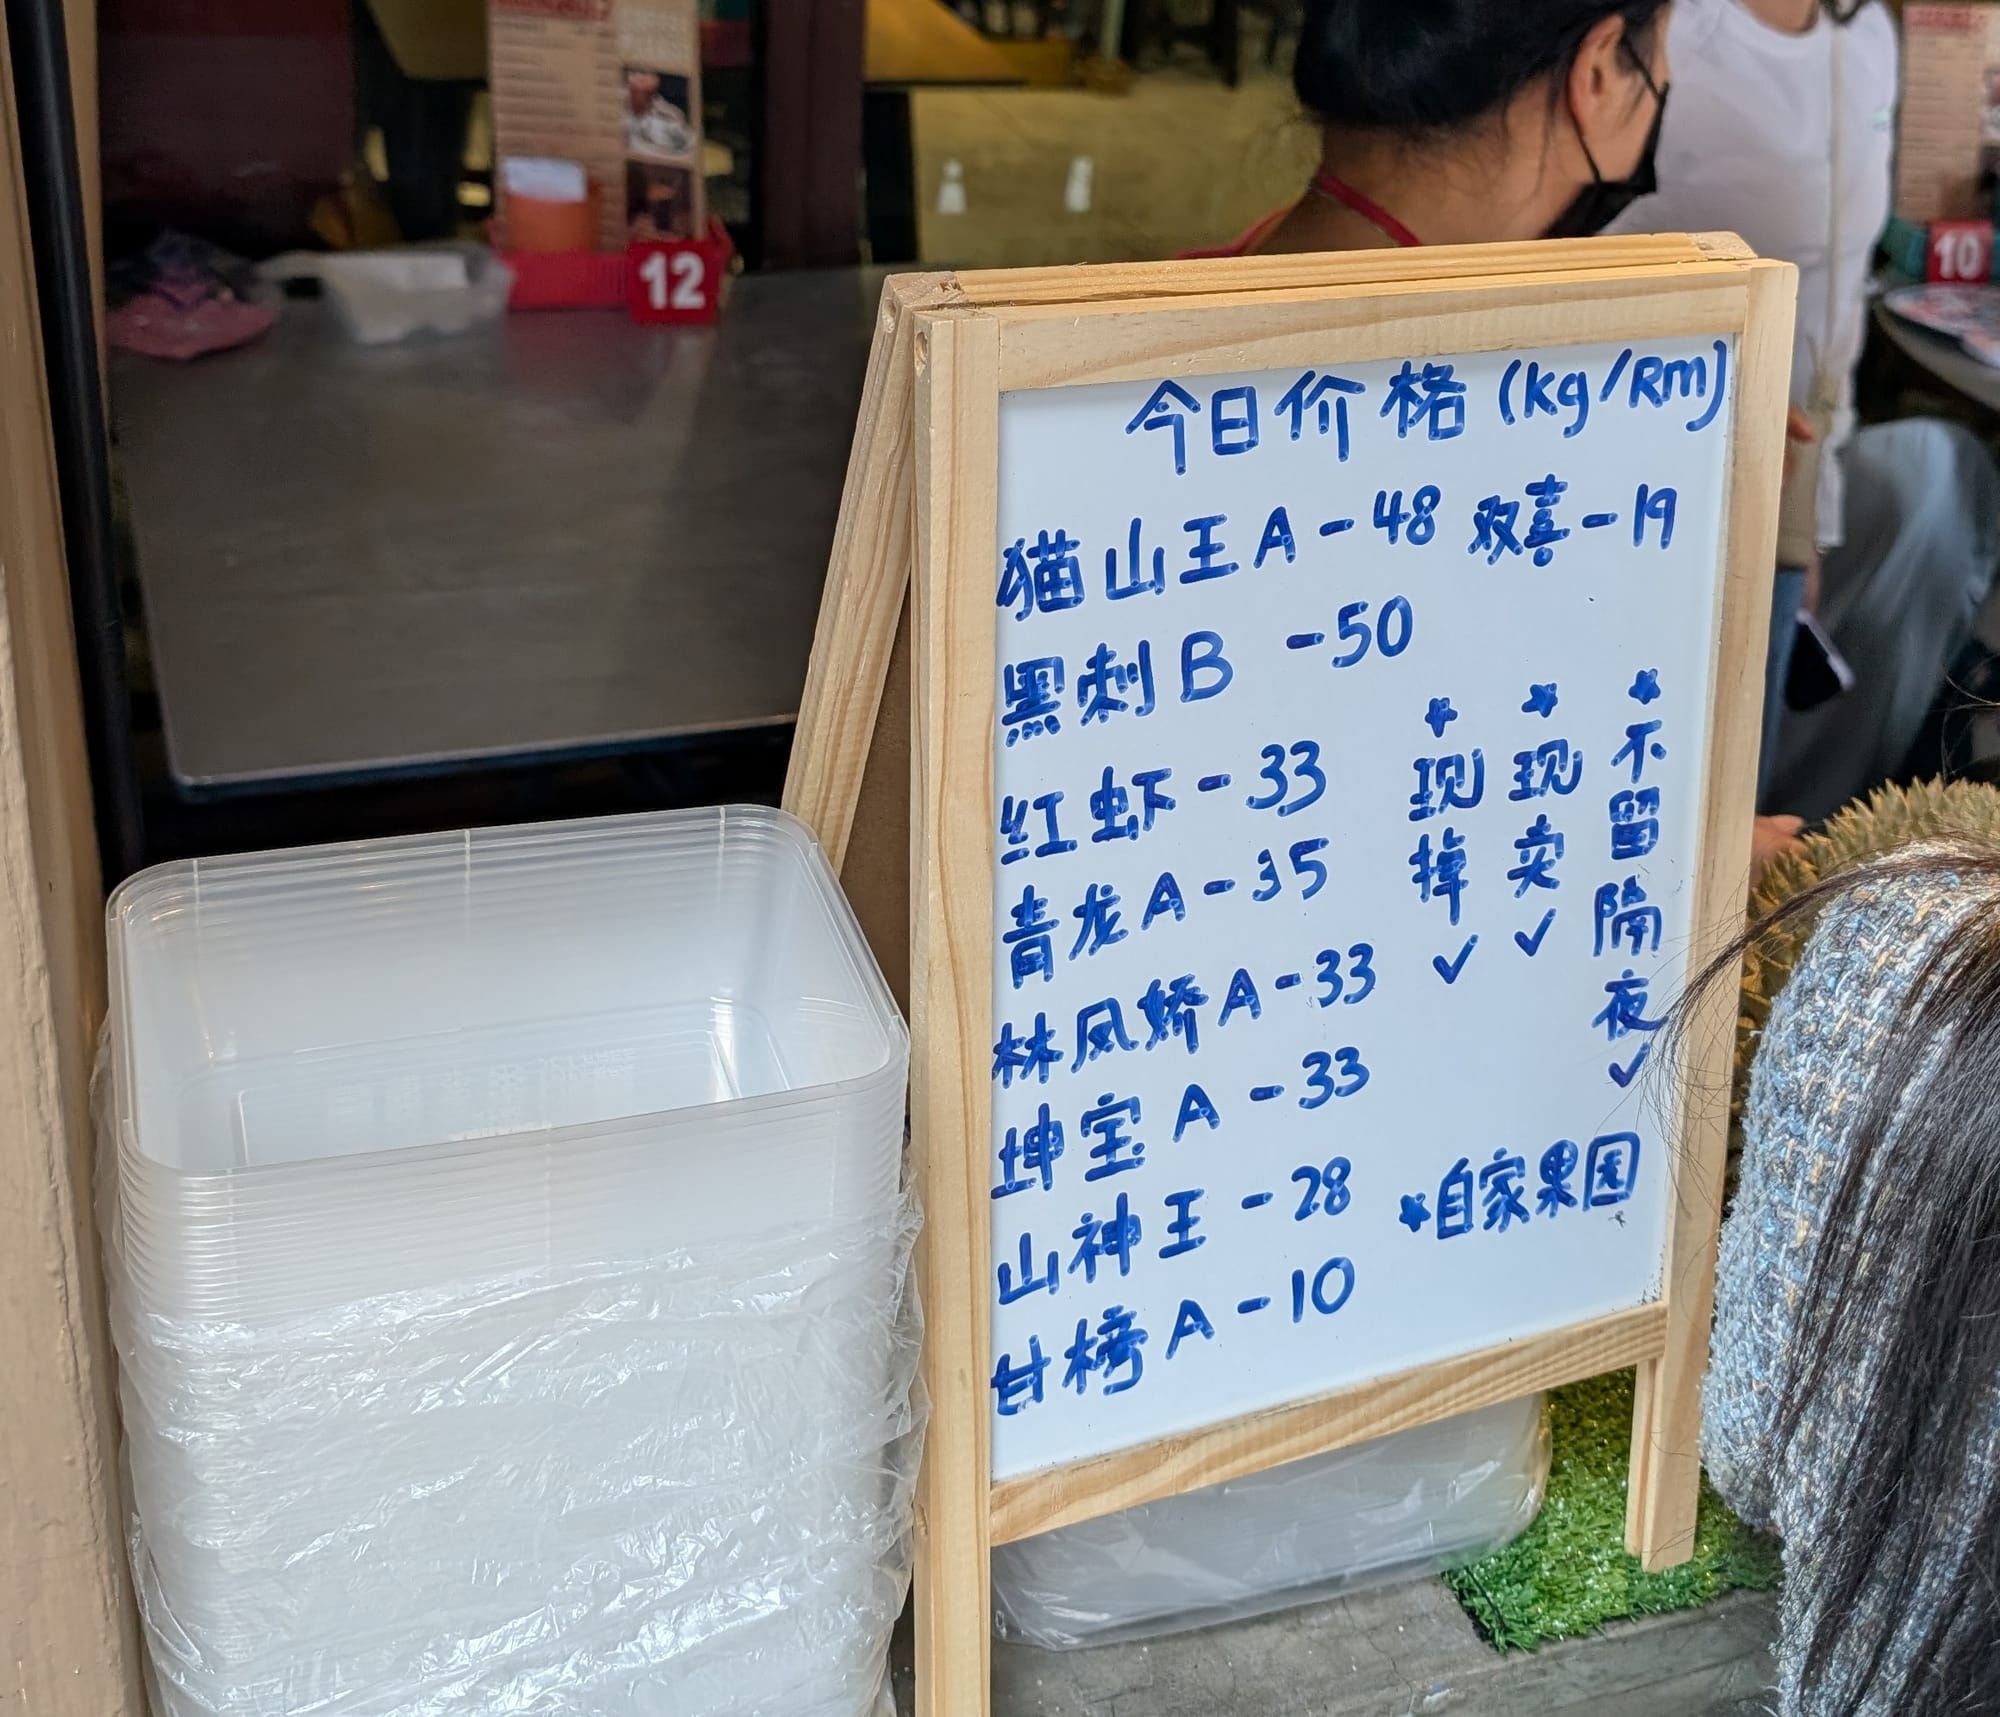 12
10
今日价格 (kg/Rm)
猫山王A-48 双喜-19
黑刺B -50
红虾-33
青龙A-35
林凤娇A-33
坤宝A-33
山神王-28
甘榜A-10
*现掉✓
*现卖✓
*不留隔夜✓
*自家果园